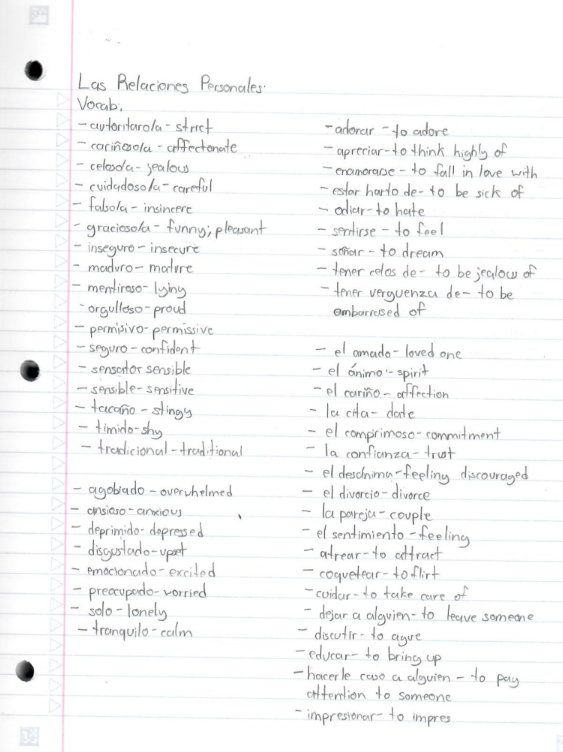 Las Relaciones Personales:
Vocab.
- autoritaro/a - strict
- cariñoso/a - affectonate
- celoso/a - jealous
- cuidadoso/a - careful
- falso/a - insincere
- gracioso/a - funny; pleasant
- inseguro - insecure
- maduro - mature
- mentiroso - lying
- orgulloso - proud
- permisivo - permissive
- seguro - confident
- sensato sensible
- sensible - sensitive
- tacaño - stingy
- timido - shy
- tradicional - traditional
- agobiado - overwhelmed
- ansioso - anxious
- deprimido - depressed
- disgustado - upset
- emocionado - excited
- preocupado - worried
- solo - lonely
- tranquilo - calm
- adorar - to adore
- apreciar - to think highly of
- enamorarse - to fall in love with
- estar harto de - to be sick of
- odiar - to hate
- sentirse - to feel
- soñar - to dream
- tener celos de - to be jealous of
- tener verguenza de - to be
embarrased of
- el amado - loved one
- el ánimo - spirit
- el cariño - affection
- la cita - date
- el comprimoso - commitment
- la confianza - trust
- el desánimo - feeling discouraged
- el divorcio - divorce
- la pareja - couple
- el sentimiento - feeling
- atrear - to attract
- coquetear - to flirt
- cuidar - to take care of
- dejar a alguien - to leave someone
- discutir - to ague
- educar - to bring up
- hacerle caso a alguien - to pay
attention to someone
- impresionar - to impres